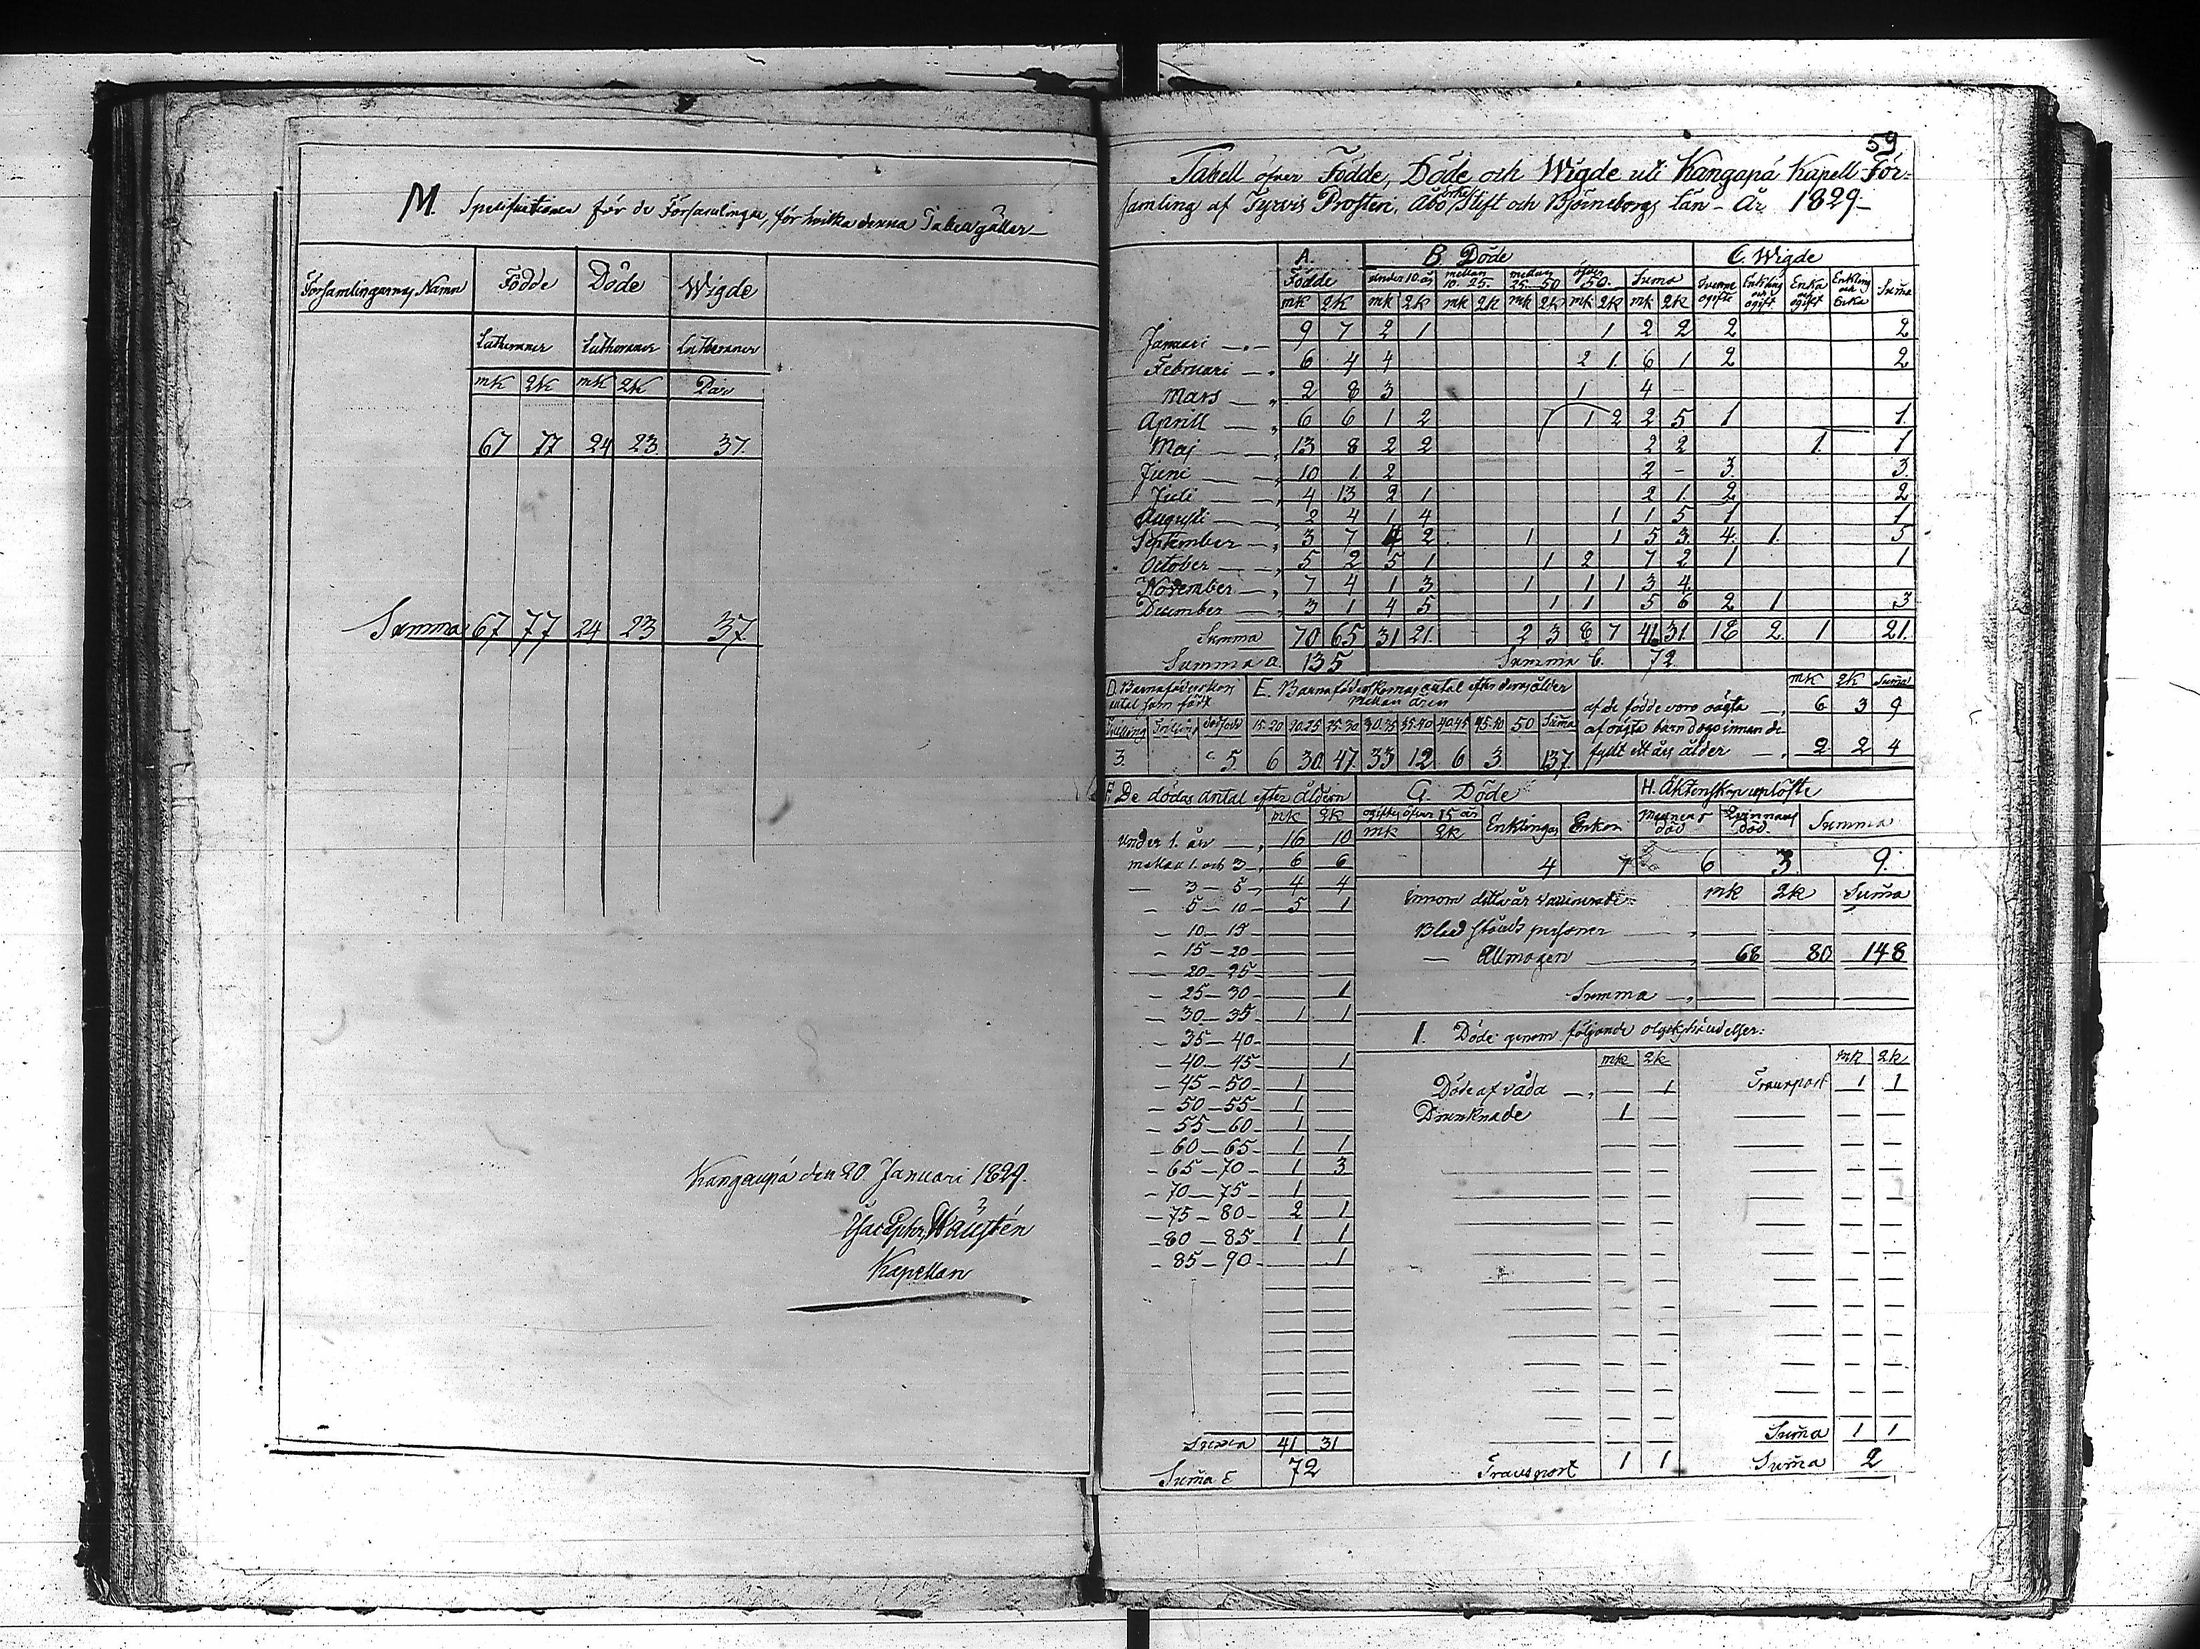 M. Spesifikationen för de Församlingar, för hvilka denna Tabell gäller
Församlingarnas Namn Födde Döde Wigde
Lutheraner Lutheraner Lutheraner
mk qk mk qk Par
67 77 24 23 37.
Summa 67 77 24 23 37
Kangaspä den 20. Januari 1829.
Wänstén
Kapellan
59
Tabell öfver Födde, Döde och Wigde uti Kangaspä Kapell För-
samling af Tyrvis Prosteri, Åbo Erkestift och Björneborgs län År 1829
A. B. Döde C. Wigde
Födde under 10 år mellan 10. 25. mellan 25. 50 öfver 50. Summa Tvenne ogifte Enkling och ogift Enka och ogift Enkling och Enka Summa
mk qk mk qk mk qk mk qk mk qk mk qk
Januari 9 7 2 1 1 2 2 2 2
Februari 6 4 4 2 1. 6 1 2 2
Mars 2 8 3 1 4 -
Aprill 6 6 1 2 1 1 2 2 5 1 1.
Maj 13 8 2 2 2 2 1. 1
Juni 10 1. 2 2 - 3 3.
Juli 4 13 2 1 2 1. 2 2
Augusti 2 4 1 4 1 1 5 1 1
September 3 7 4 2 1 1 5 3. 4. 1. 5
October 5 2 5 1 1 2 7 2 1 1
November 7 4 1 3 1 1 1 3 4.
December 3 1 4 5 1 1 5 6 2 1 3
Summa 70 65 31 21. 2 3 8 7 41 31. 18 2. 1 21.
Summa a. 135 Summa b. 72.
D. Barnaföderskors antal som födt E. Barnaföderskornas antal efter deras ålder mellan åren mk qk Summa
Tvilling Trilling dödfödde 15-20 20-25 25-30 30-35 35-40 40-45 45-50 50 Summa af de födde voro oägta 6 3 9
3. 5. 6 30. 47. 33 12 6 3. 137. af oägta barn dogo innan de fyldt ett års ålder 2 2 4
F. De dödas antal efter åldern G. Döde H. Äktenskap uplöste
mk qk ogifte öfver 15 år mk qk Enklingar Enkor Mannens död Qvinnans död Summa
under 1. år 16 10 4 7 6 3. 9.
mellan 1. och 3 6 6
3 - 5 4 4 Innom detta år vaccinerade: mk qk Summa
5 - 10 5 1
10 - 15 Bland Stånds personer
15 - 20 Allmogen 68 80 148
20 - 25
25 - 30 1 Summa
30 - 35 1 1 I. Döde genom följande olyckshändelser:
35 - 40
40 - 45 1 mk qk mk qk
45 - 50 1 Döde af våda 1 Transport 1 1
50 - 55 1 Drunknade 1
55 - 60 1
60 - 65 1 1
65 - 70 1 3
70 - 75 1
75 - 80 2 1
80 - 85 1 1
85 - 90 1
Summa 41 31 Summa 1 1
Summa E 72 Transport 1 1 Summa 2